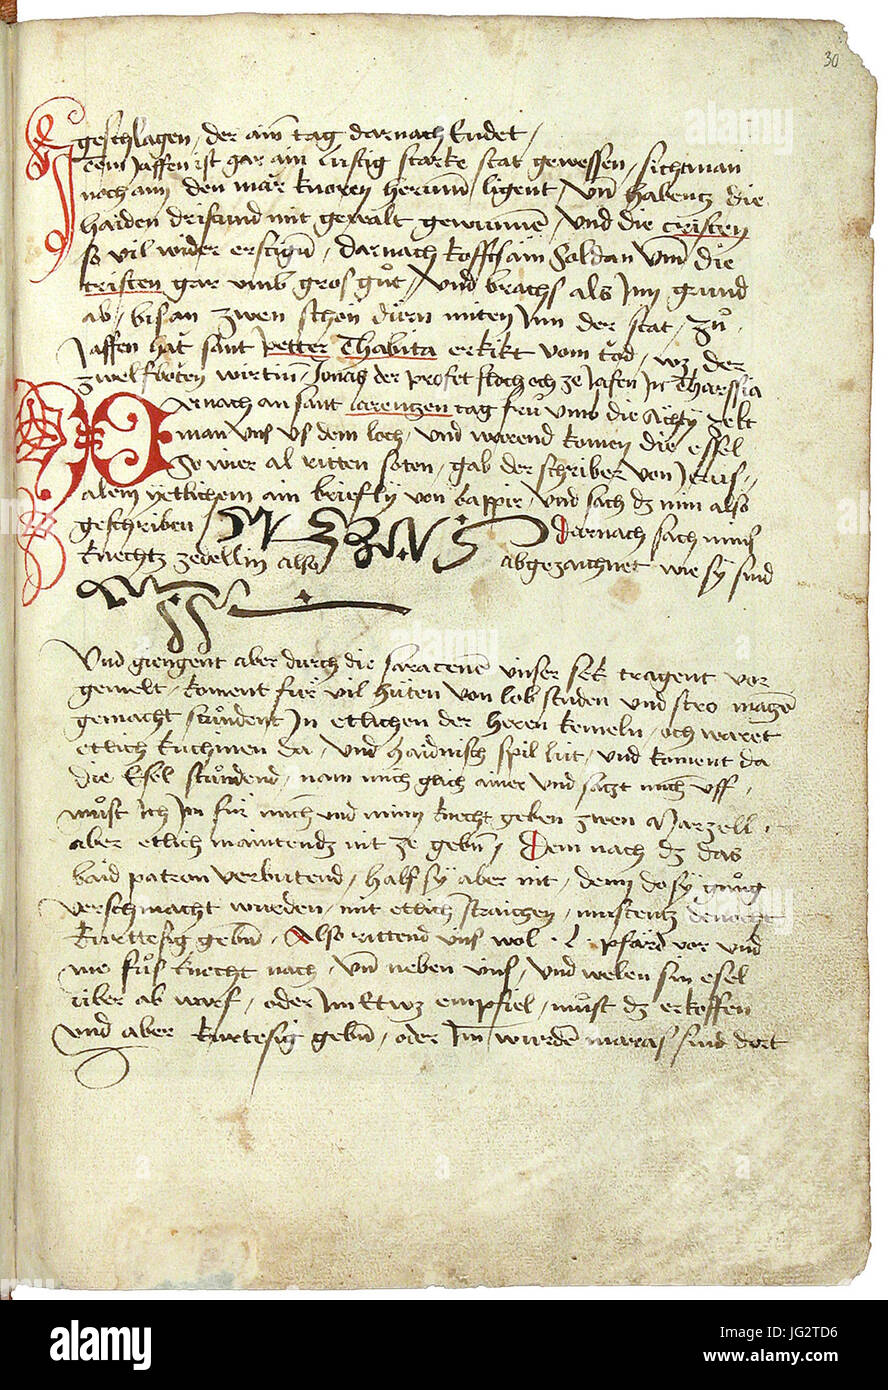 30
geschlagen, der ain tag darnach Endet,
Item Jaffen ist gar ain lustig starke stat gewessen, sicht man
noch ann den mär knoren herumb ligent, Vnd habentz die
haiden dristund mit gewalt gewunnen, vnd die cristen
so vil wider erstigen, darnach kofftz ain Soldan vmb die
cristen gar vmb gros guot, vnd brachs als Inn grund
ab, bis an zwen schon diern miten Inn der stat, zuo
Jaffen hat sant petter Thabita erkikt vom tod, wz der
zwelfboten wirtinn, Jonas der profet floch och ze Jafen In Tharssia
Darnach an sant larentzen tag fruo vmb die Achty zelt
man vns vs dem loch, vnd warend komen die essel
So wier al ritten soten, gab der schriber von Jerus,
alem yetlichem ain briefly von bappir, vnd sach dz min also
geschriben Darnach sach mins
knechtz zedellin also abgezaichnet wie sy sind
Vnd giengent aber durch die saracenen vnser sek tragent vor
gemelt, koment für vil hüten von lobstuden vnd stro
gemacht stuondent In etlichen der heren kemeln, och waret
etlich kuchinen da, vnd haidnisch spil lüt, vnd koment da
die Esel stuondend, nam mich glich ainer vnd sazt mich vff,
muost Ich Im für mich vnd minn knecht geben zwen Marzell,
aber etlich maintendz nit ze geben, Dem nach dz das
baid patron verbutend, half sy aber nit, denn do sy gnuog
verschmacht wurden, mit etlich straichen, mustentz dennocht
kurttesig geben, Also rittend vns wol L pfärd vor vnd
me fuos knecht nach, vnd neben vns, vnd welen sin esel
über ab warf, oder Im Etwz empfiel, muost dz erkoffen
vnd aber kurtesig geben, oder Im wurden sind dort
alamy
Image ID: JG2TD6
www.alamy.com